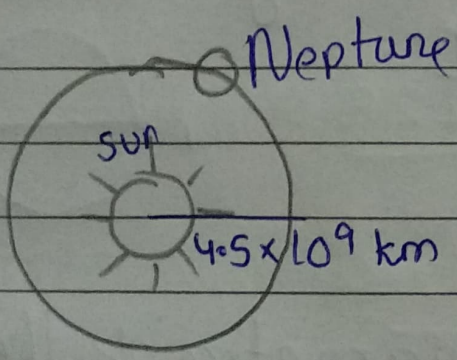 Neptune
sun
4.5 x 10⁹ km